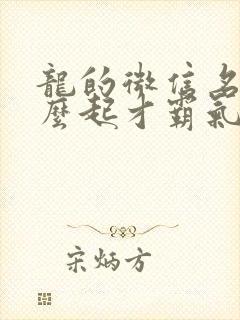 龍的微信名
麼起才霸氣
宋炳方